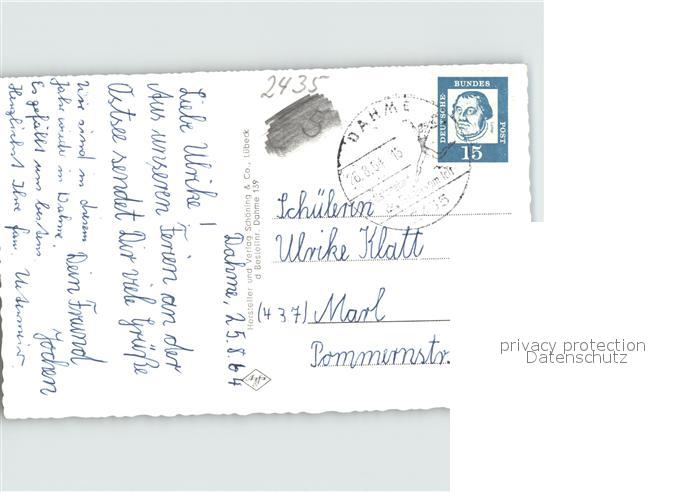 2435
Dahme, 25.8.64
Liebe Ulrike!
Aus unseren Ferien an der
Ostsee sendet Dir viele Grüße
Dein Freund
Jochen
Wir sind in diesem
Jahr wieder in Dahme.
Es gefällt uns bestens.
Herzlichst Ihre Fam.
Hersteller und Verlag Schöning & Co., Lübeck
Bestellnr. Dahme 139
DAHME
DEUTSCHE
BUNDES
POST
15
Schülerin
Ulrike Klatt
(437) Marl
Pommernstr.
privacy protection
Datenschutz